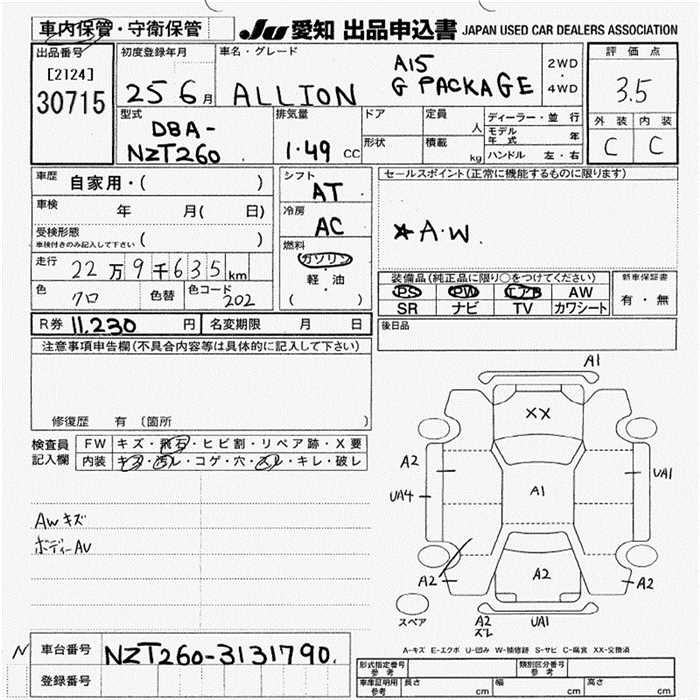 車内保管・守衛保管
JU 愛知 出品申込書 JAPAN USED CAR DEALERS ASSOCIATION
出品番号
[2124]
30715
初度登録年月
25 6月
車名・グレード
ALLION
A15
G PACKAGE
2WD
・
4WD
評価点
3.5
外装 内装
C C
型式
DBA-
NZT260
排気量
1.49 cc
ドア
形状
定員
人
積載
kg
ディーラー・並行
モデル年式 年
ハンドル 左・右
車歴 自家用・( )
車検 年 月( 日)
受検形態
車検付きのみ記入して下さい ( )
走行 22万9千635km
色 クロ 色替 色コード 202
シフト
AT
冷房
AC
燃料
ガソリン
・
軽・油
( )
セールスポイント(正常に機能するものに限ります)
★A.W.
装備品(純正品に限り○をつけてください)
PS PW エアB AW
SR ナビ TV カワシート
新車保証書
有・無
R券 11,230 円 名変期限 月 日
後日品
注意事項申告欄(不具合内容等は具体的に記入して下さい)
修復歴 有 〔箇所 〕
検査員
記入欄
FW キズ・飛石・ヒビ割・リペア跡・X要
内装 キズ・汚レ・コゲ・穴・スレ・キレ・破レ
AWキズ
ボディーAU
A1
XX
A2
UA4
A1
UA1
A2
A2
A2
スペア
A2
ズレ
UA1
A-キズ E-エクボ U-凹み W-補修跡 S-サビ C-腐食 XX-交換済
N
車台番号 NZT260-3131790.
登録番号
形式指定番号
参考
類別区分番号
参考
車庫証明用
参考
長さ cm 幅 cm 高さ cm